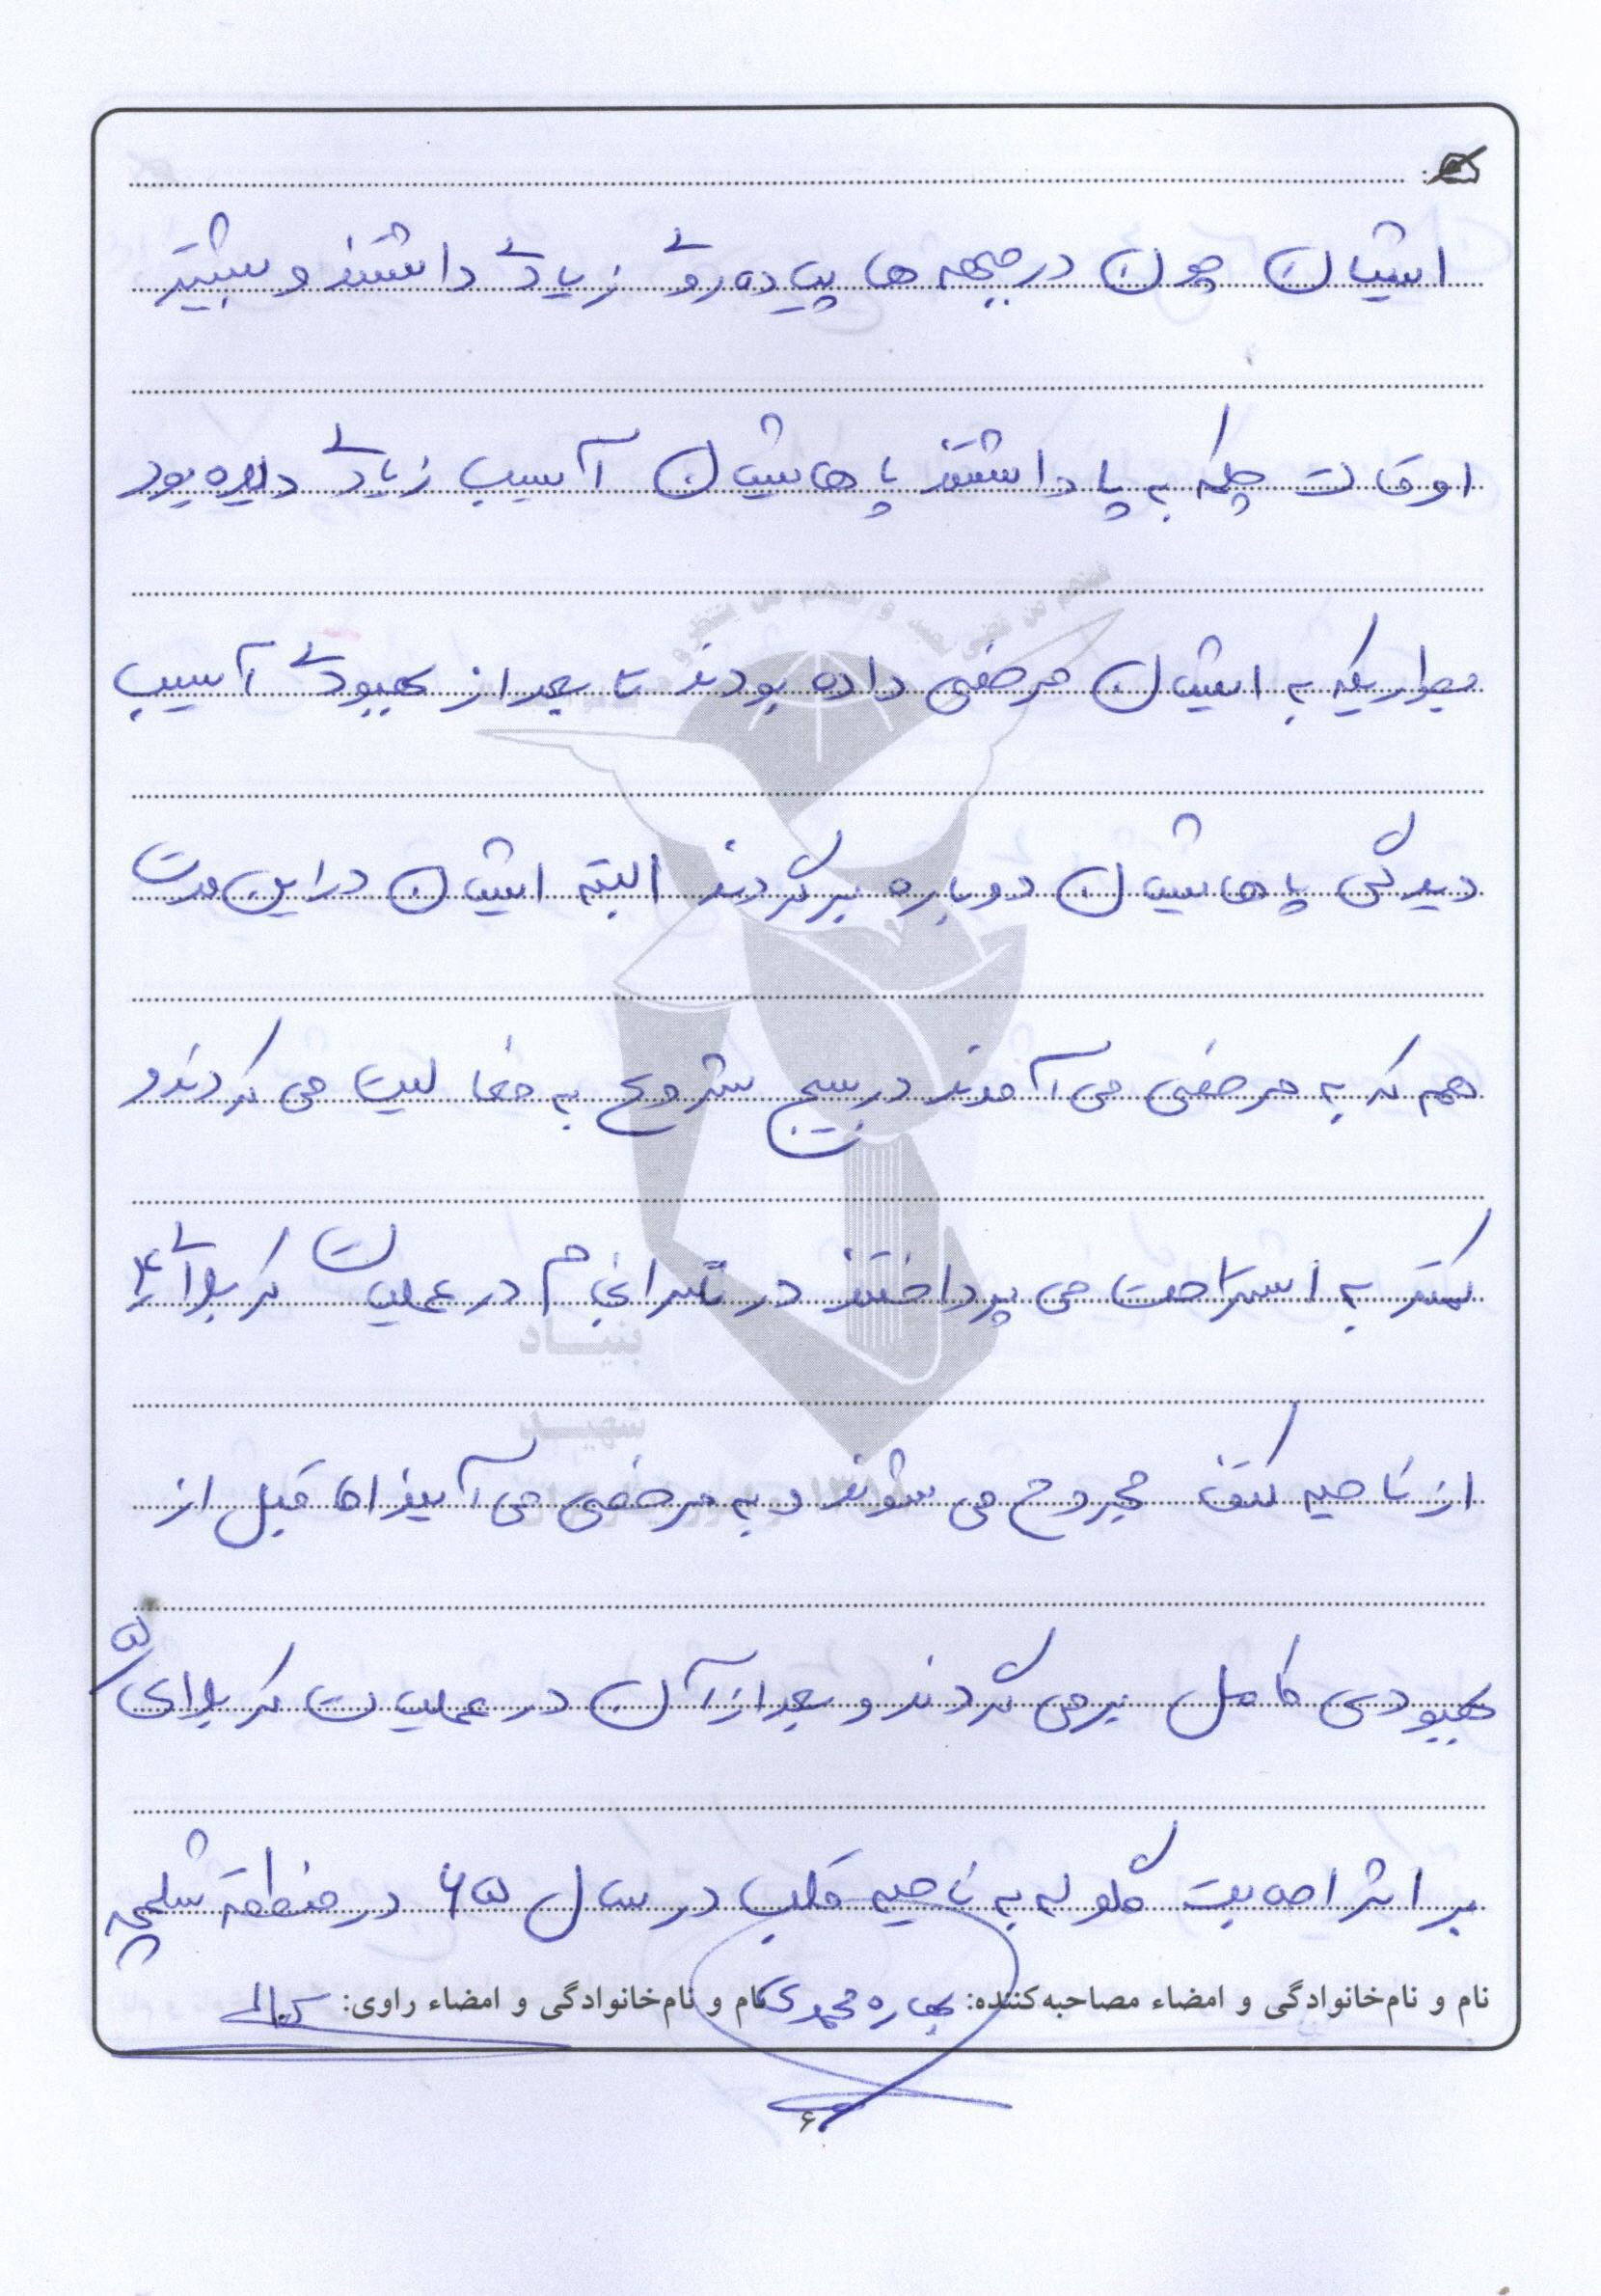 ایشان چون در جبهه ها پیاده روی زیادی داشتند و بیشتر
اوقات چکمه به پا داشتند پاهایشان آسیب زیادی دیده بود
بطوریکه به ایشان مرخصی داده بودند تا بعد از بهبودی آسیب
دیدگی پاهایشان دوباره برگردند البته ایشان در این مدت
هم که به مرخصی می آمدند در بسیج شروع به فعالیت می کردند و
کمتر به استراحت می پرداختند در سرانجام در عملیات کربلای ۴
از ناحیه کتف مجروح می شوند و به مرخصی می آیند اما قبل از
بهبودی کامل برمی گردند و بعد از آن در عملیات کربلای ۵
بر اثر اصابت گلوله به ناحیه قلب در سال ۶۵ در منطقه شلمچه
نام و نام‌خانوادگی و امضاء مصاحبه‌کننده: بهاره محمدی نام و نام‌خانوادگی و امضاء راوی:
۶
بنیاد
شهید